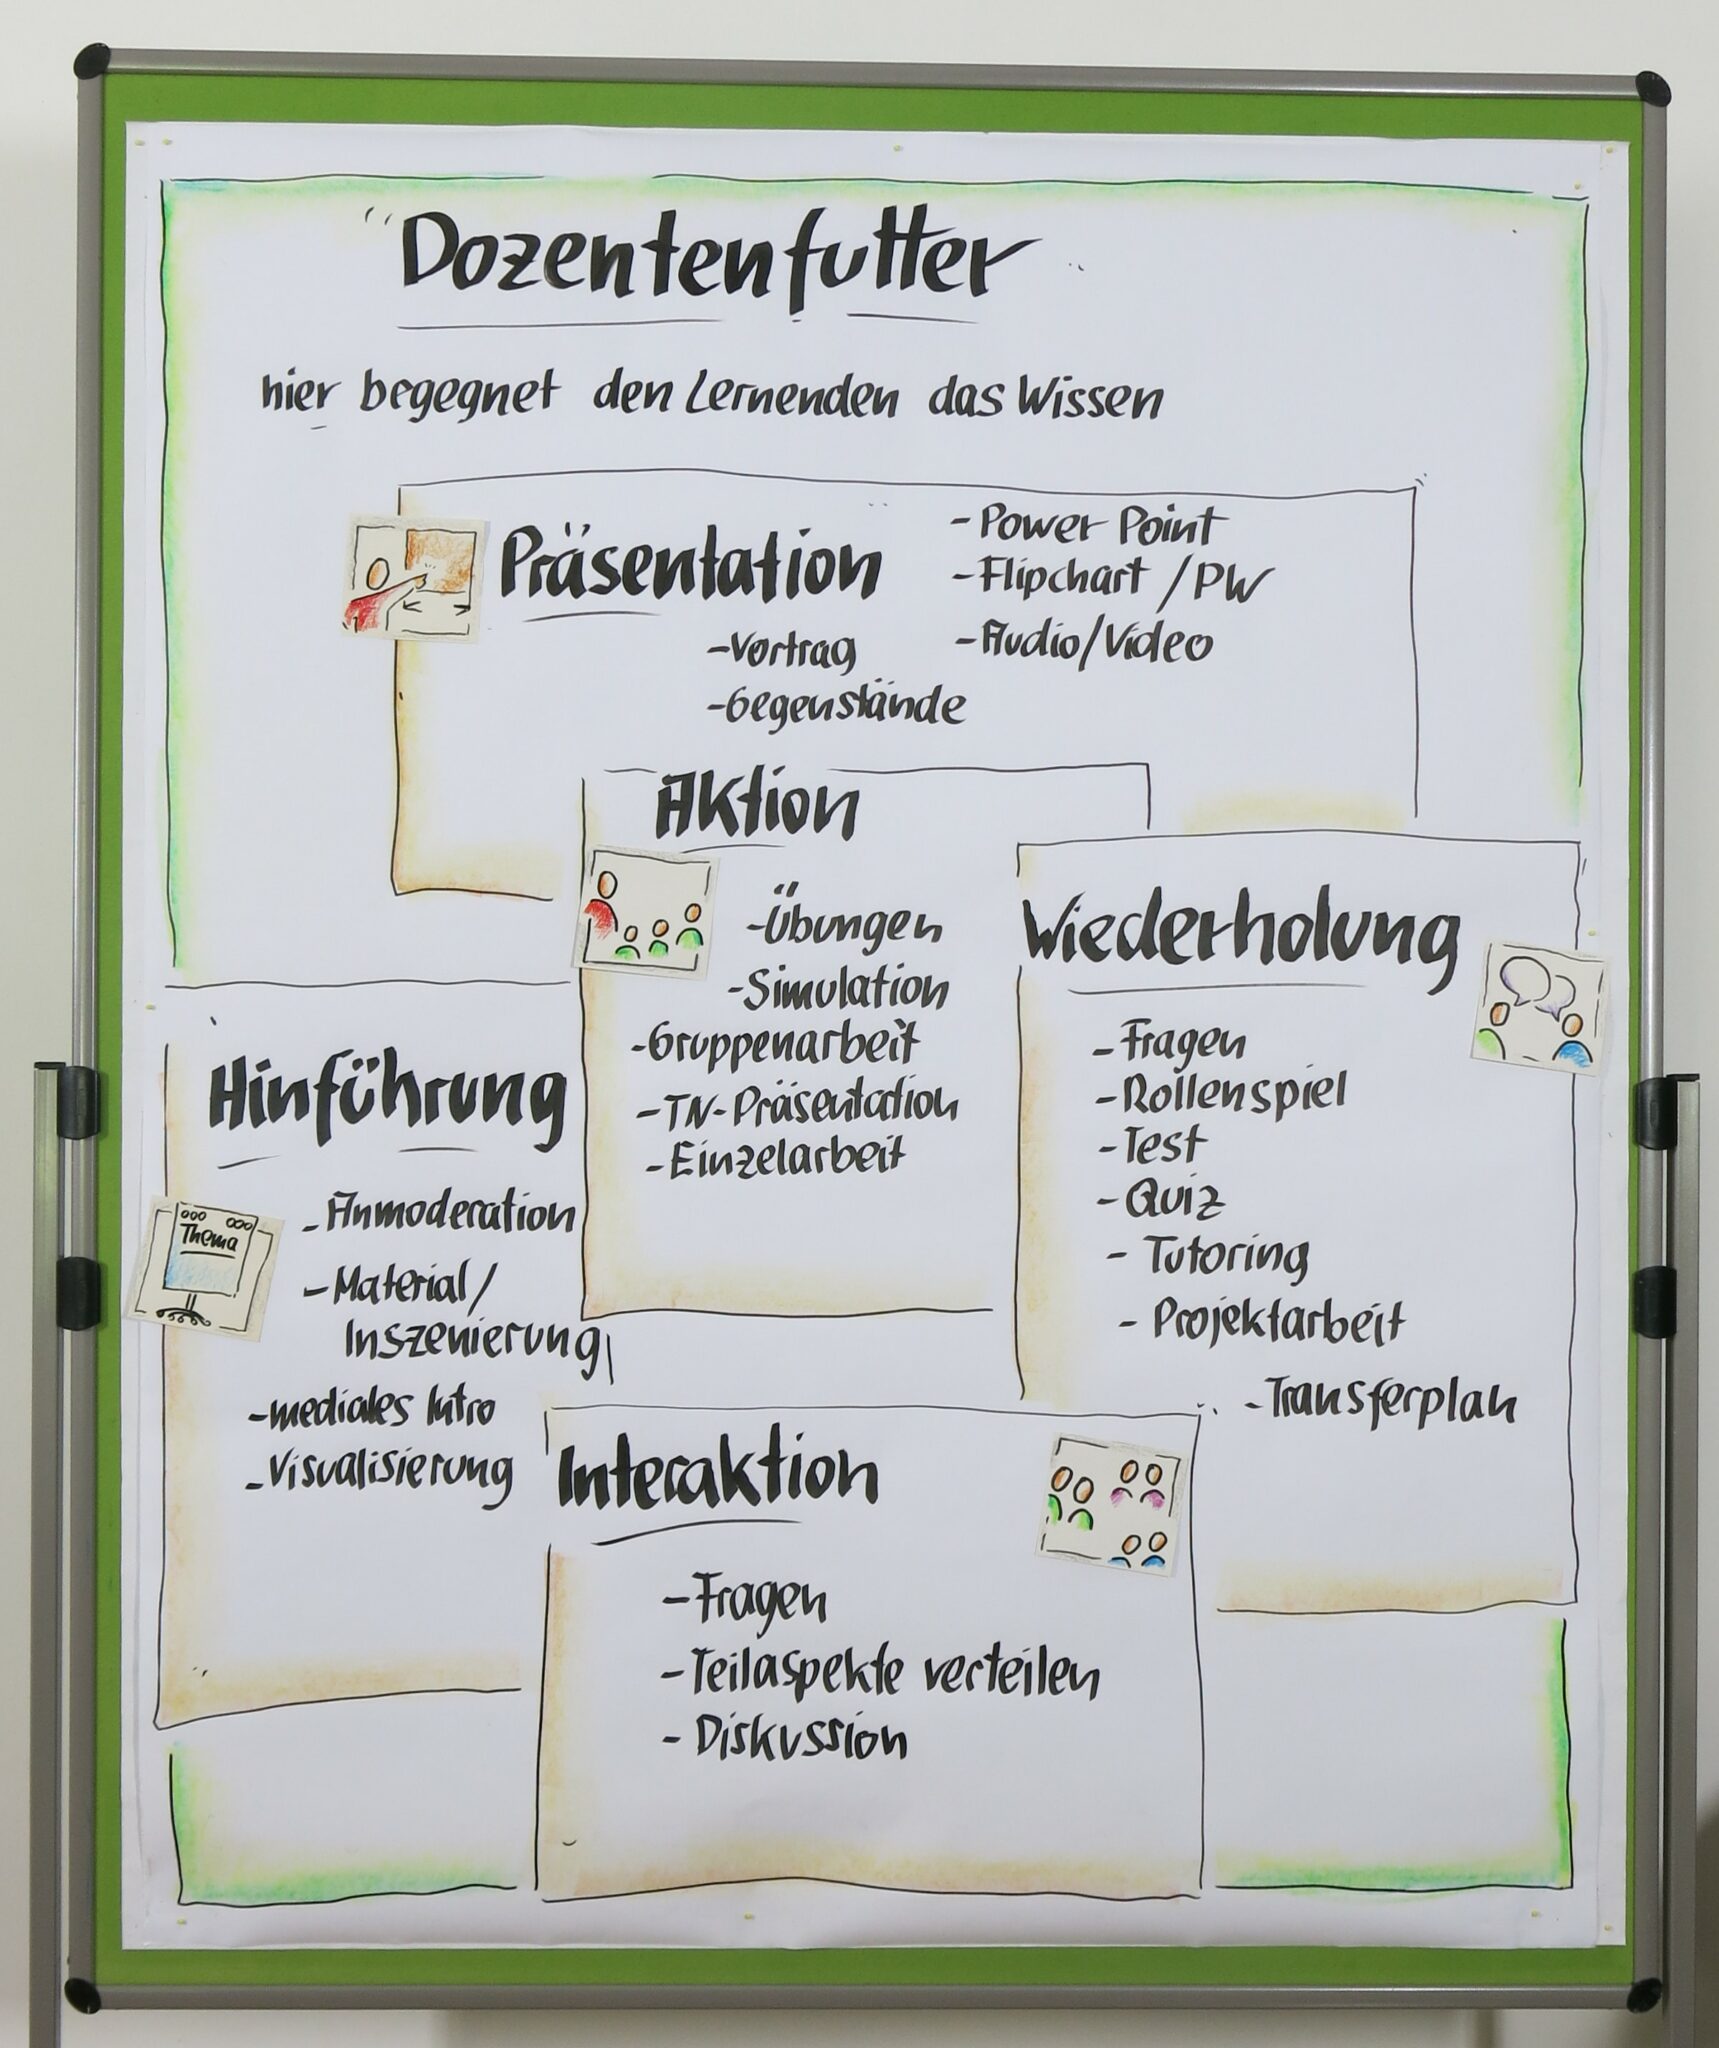 Dozentenfutter
hier begegnet den Lernenden das Wissen
Präsentation
-Vortrag
-Gegenstände
-Power Point
-Flipchart /PW
-Audio/Video
Aktion
-Übungen
-Simulation
-Gruppenarbeit
-TN-Präsentation
-Einzelarbeit
Wiederholung
-Fragen
-Rollenspiel
-Test
-Quiz
- Tutoring
- Projektarbeit
-Transferplan
Hinführung
Thema
-Anmoderation
-Material/
Inszenierung
-mediales Intro
-Visualisierung
Interaktion
-Fragen
-Teilaspekte verteilen
- Diskussion